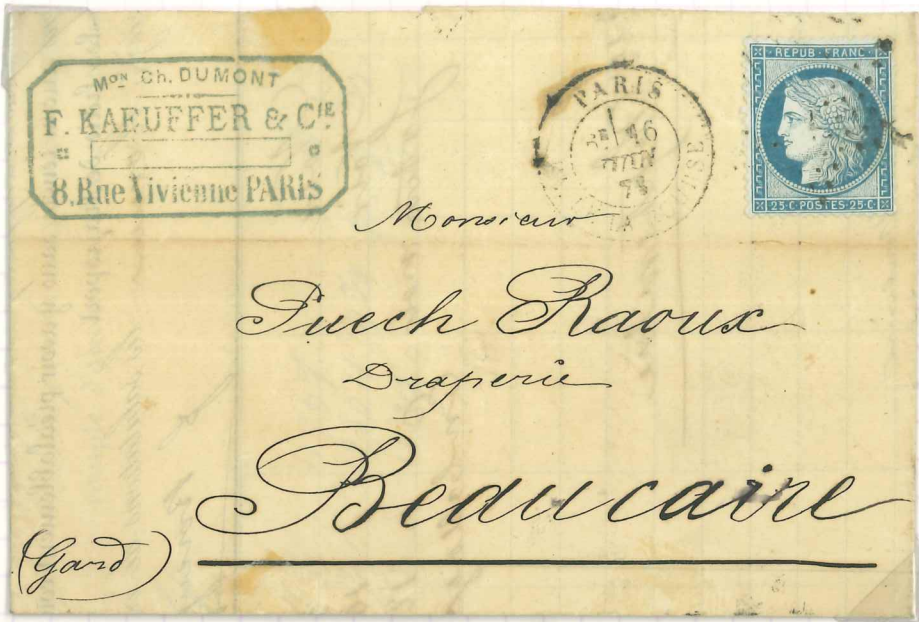 Mon Ch. DUMONT
F. KAEUFFER & CIE
8, Rue Vivienne PARIS
PARIS
16
JUIN
REPUB·FRANC
25·C·POSTES·25·C
Monsieur
Puech Raoux
Draperie
Beaucaire
(Gard)